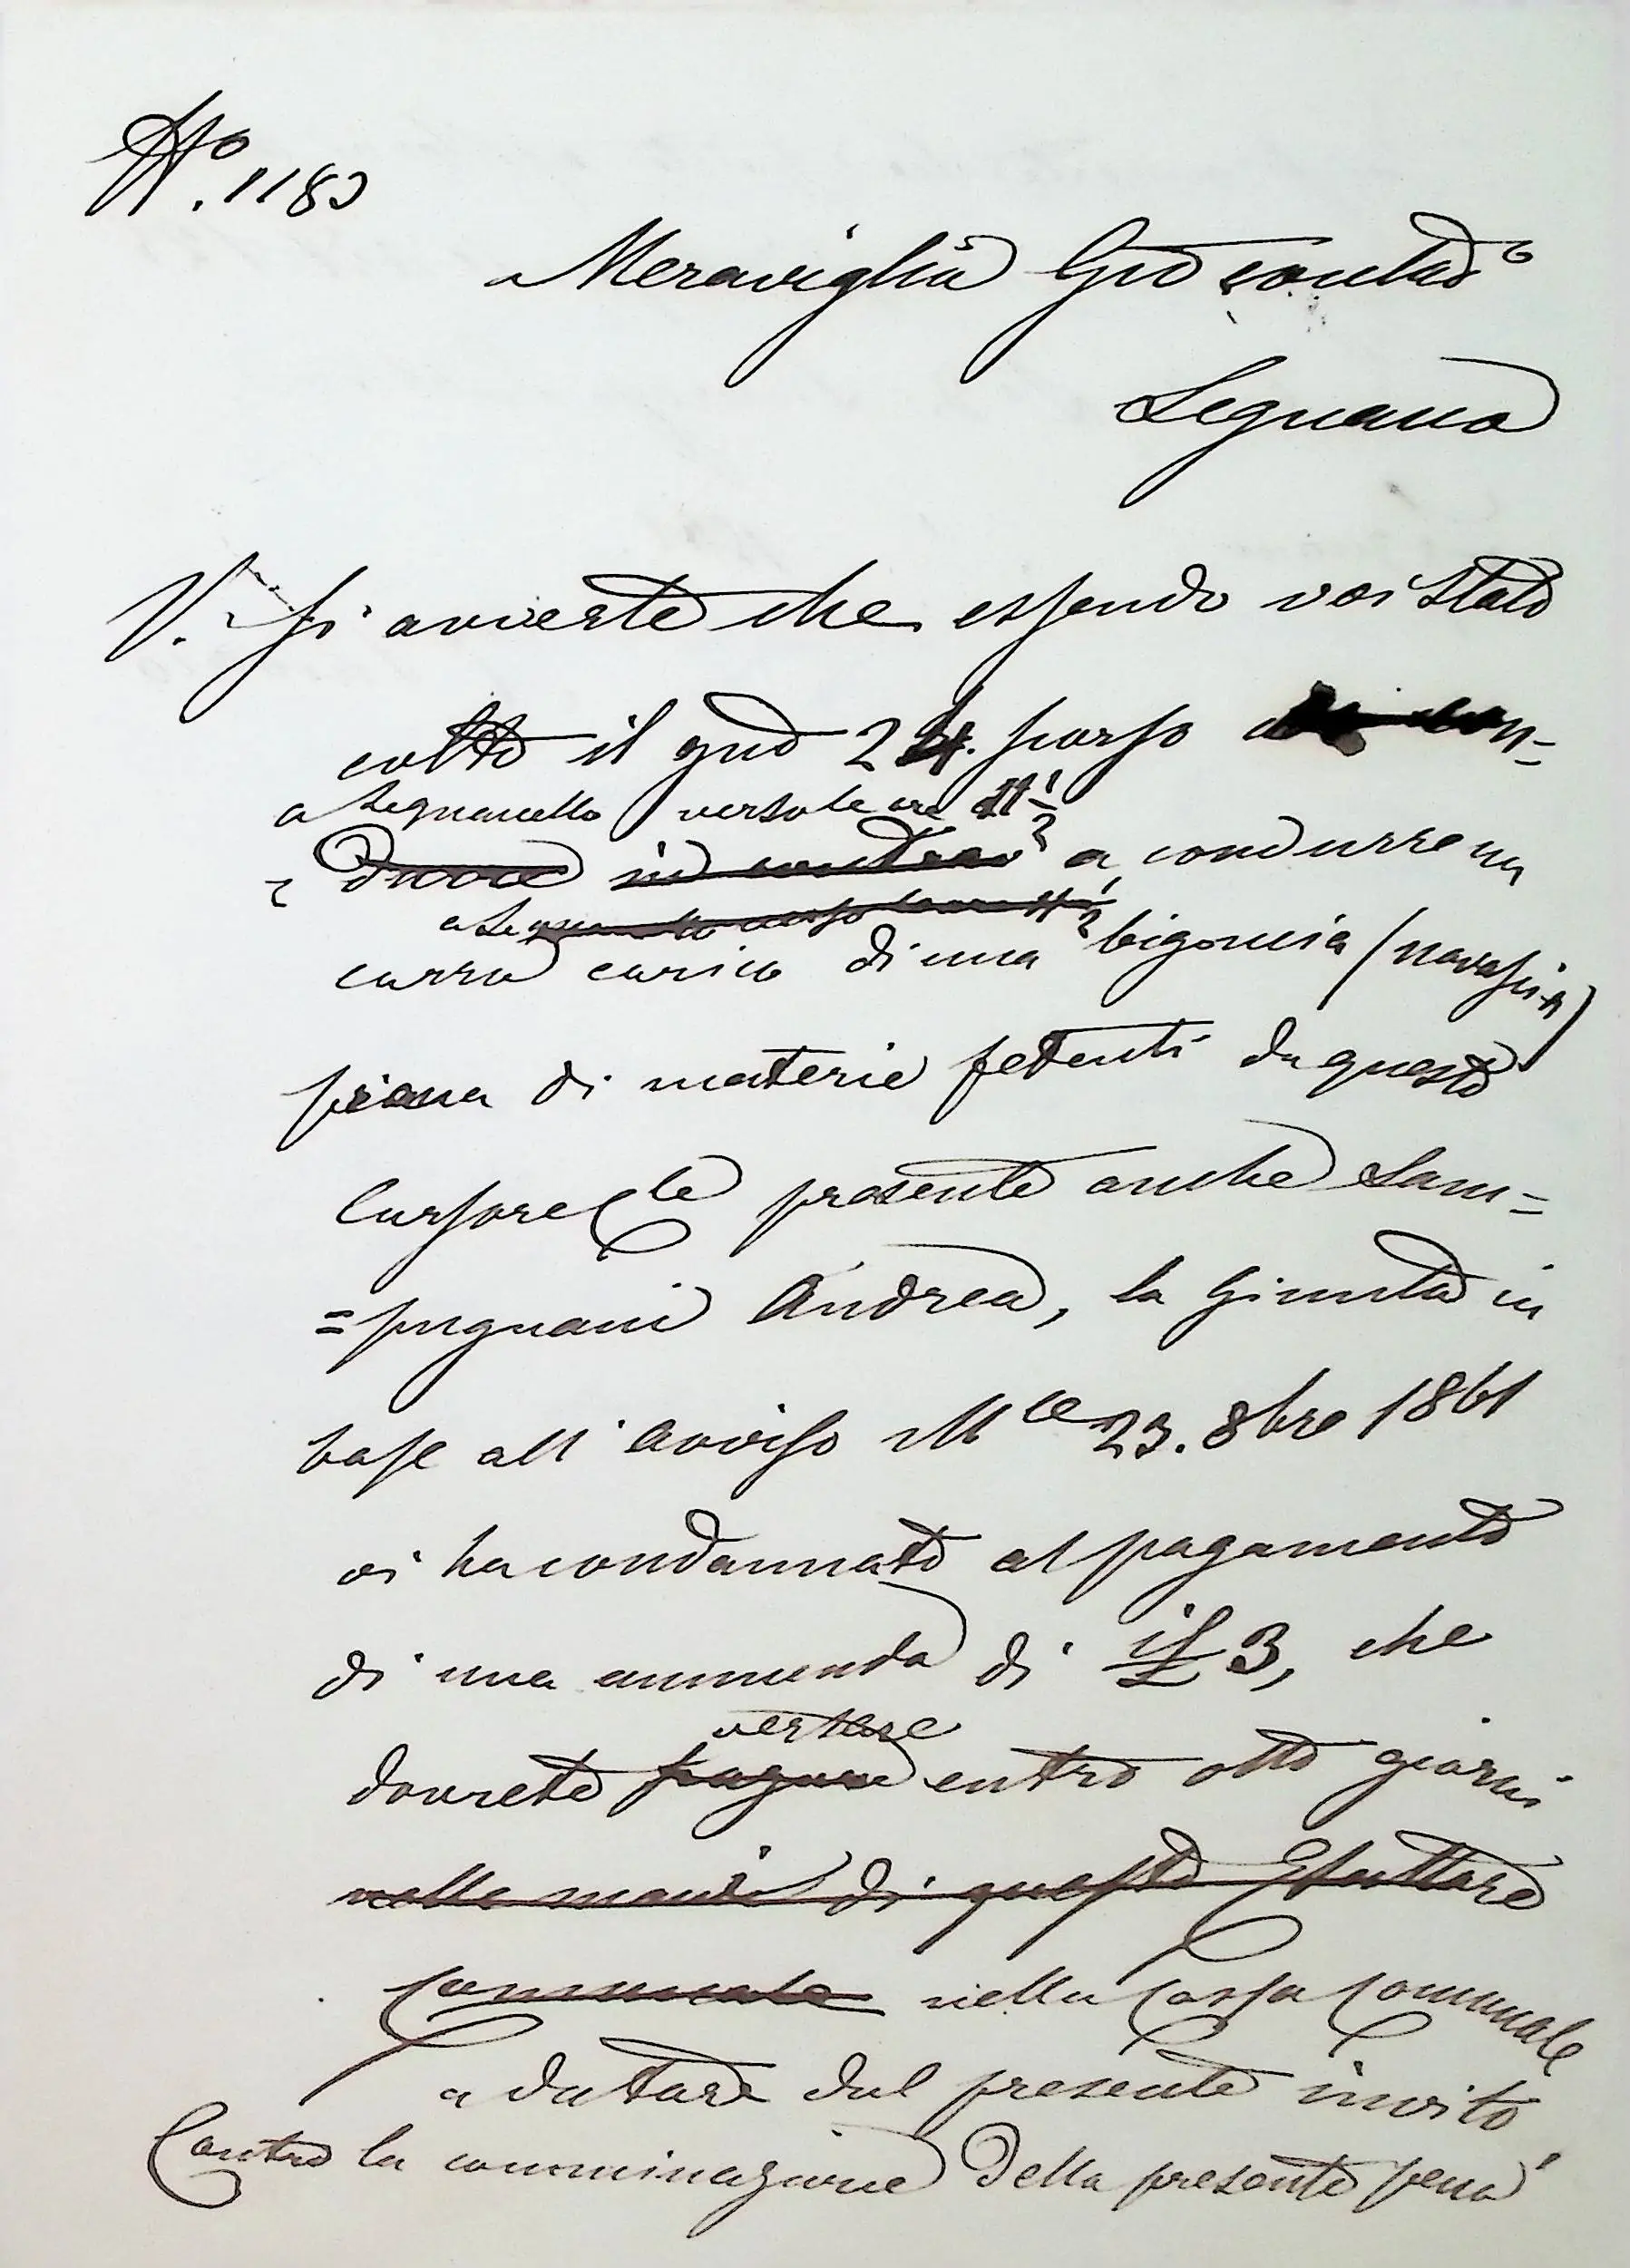 N.o 1183
Meraviglia Gio contad.o
Legnano
V. Si avverte che essendo voi stato
colto il gno 24. scorso
a Legnanello verso le ore 11 1/2
a condurre un
a Legnanello verso le ore 11 1/2
carro carico di una bigoncia (navascia)
piena di materie fetenti da questo
Cursore C.le presente anche Lam=
=pugnani Andrea, la Giunta in
base all'avviso M.le 23. 8bre 1861
vi ha condannato al pagamento
di una ammenda di it£ 3, che
versare
dovrete pagare entro otto giorni
nelle mani di questo Esattore
Comunale nella Cassa Comunale
a datare dal presente invito
Contro la comminazione della presente pena